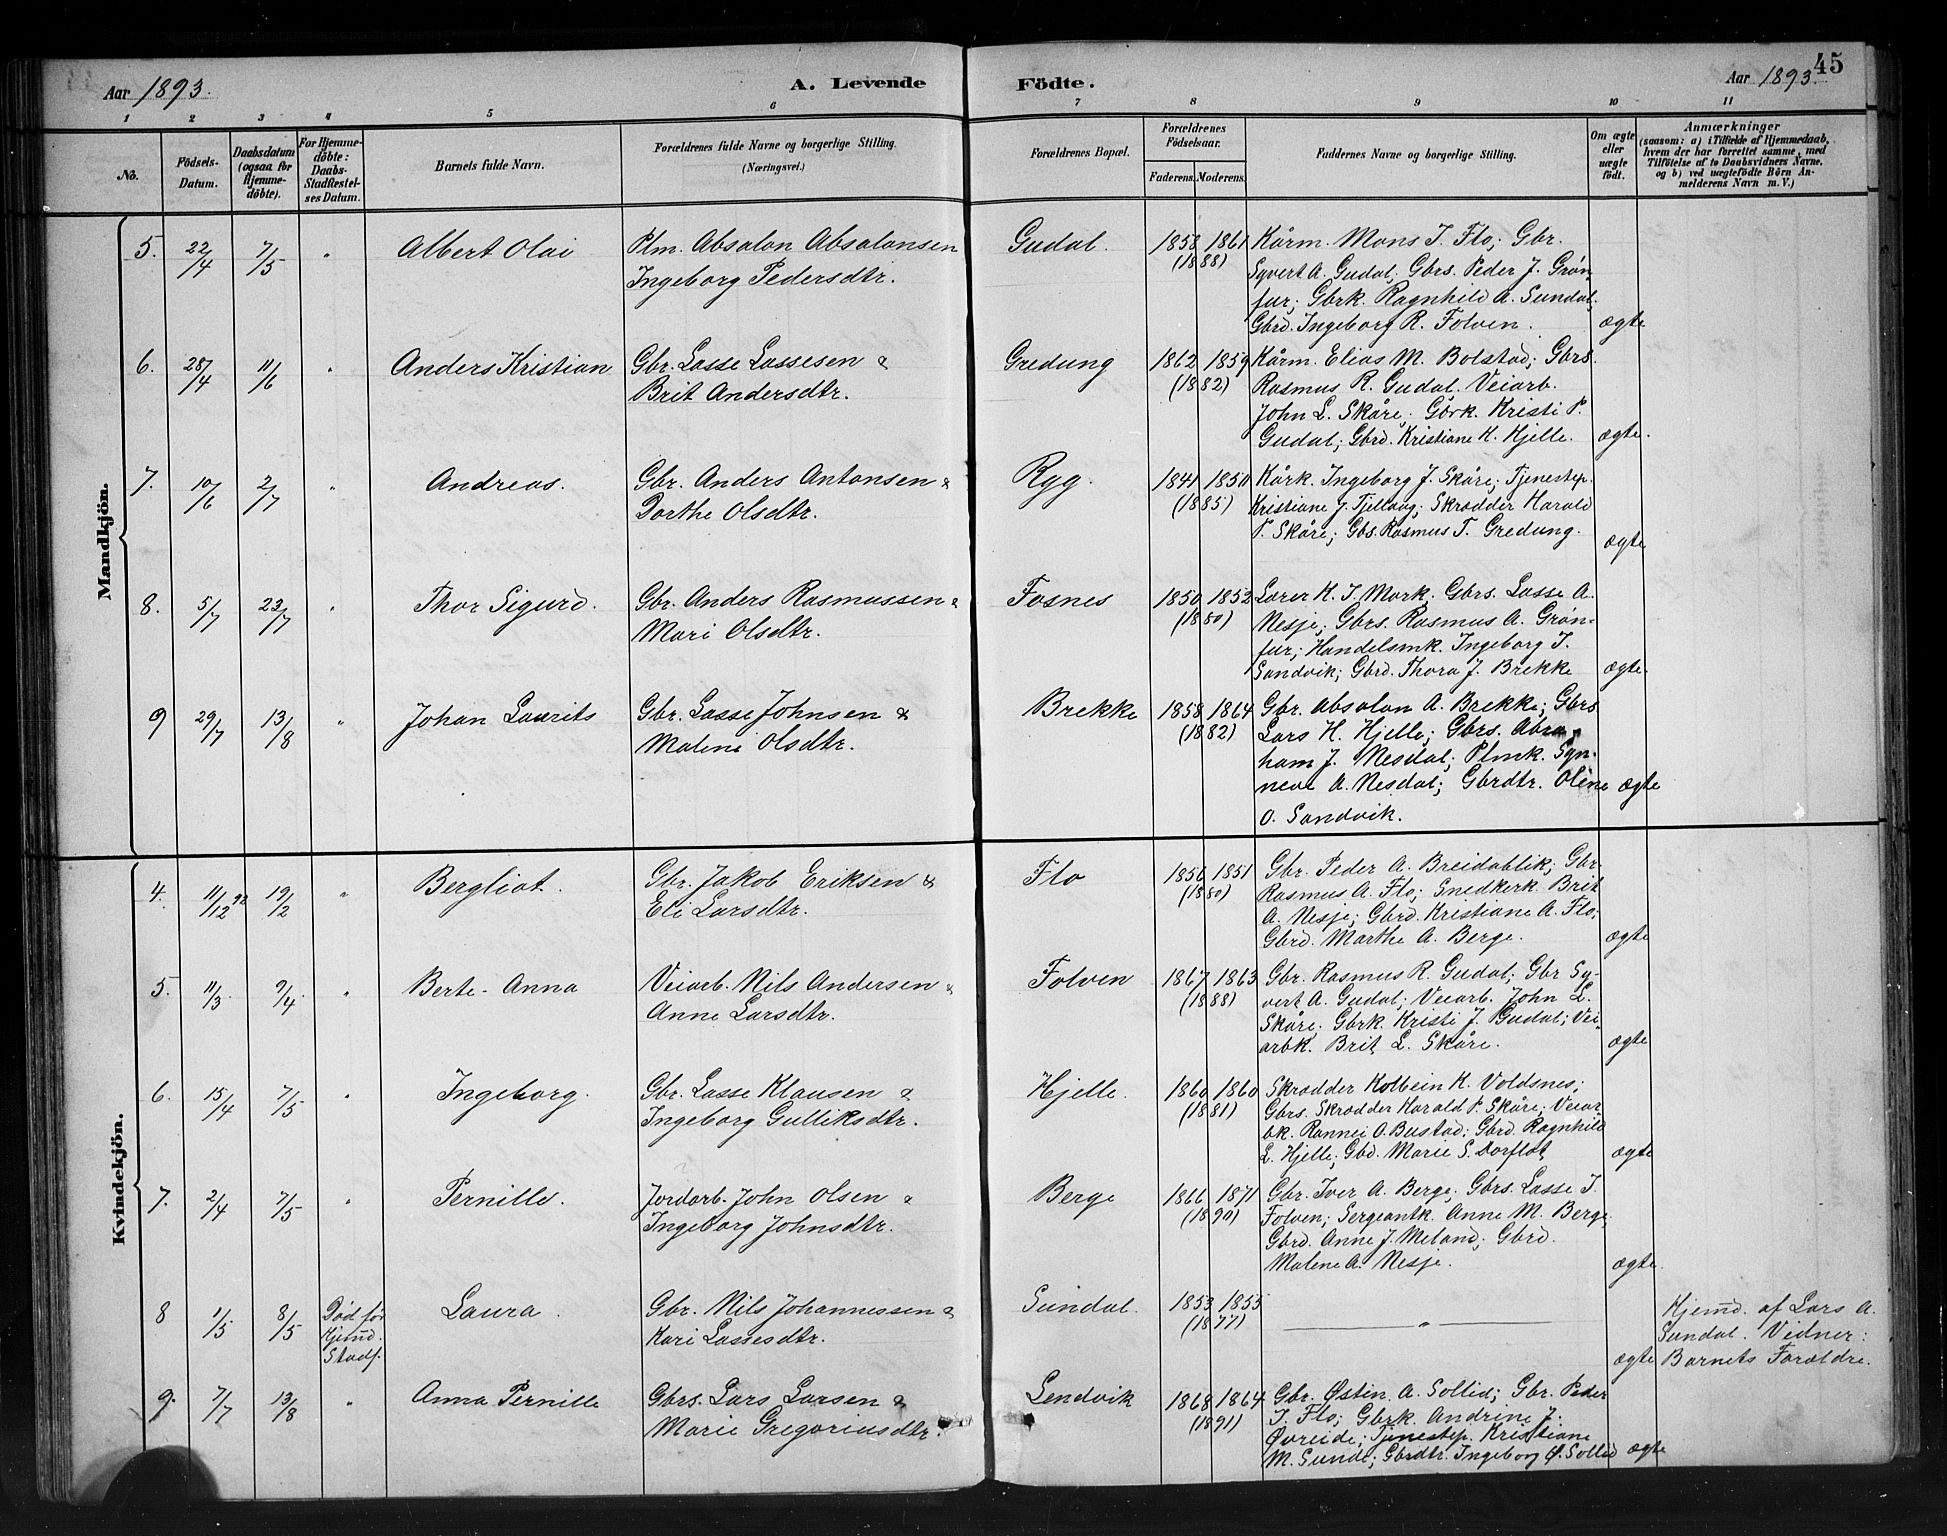 45
Aar 1893. A. Levende Födte. Aar 1893.
1 2 3 4 5 6 7 8 9 10 11
No.
Födsels-Datum.
Daabsdatum (ogsaa for Hjemme-döbte).
For Hjemme-döbte: Daabs-Stadfæstel-ses Datum.
Barnets fulde Navn.
Forældrenes fulde Navne og borgerlige Stilling.
(Næringsvei.)
Forældrenes Bopæl.
Forældrenes Födselsaar.
Faderens. Moderens.
Faddernes Navne og borgerlige Stilling.
Om ægte eller uægte födt.
Anmærkninger
(saasom: a) i Tilfælde af Hjemmedaab,
hvem der har forrettet samme, med
Tilföielse af to Daabsvidners Navne,
og b) ved uægtefödte Börn An-
melderens Navn m. V.)
Mandkjön.
5. 22/4 7/5 " Albert Olai Plm. Absalon Absalonsen Gudal. 1858 1861 Kårm. Mons J. Flo; Gbr.
Ingeborg Pedersdtr. (1888) Syvert A. Gudal; Gbrs. Peder J. Grøn-
fur; Gbrk. Ragnhild A. Sundal;
Gbrd. Ingeborg R. Folven. ægte
6. 28/4 11/6 " Anders Kristian Gbr. Lasse Lassesen & Gredung 1862 1859 Kårm. Elias M. Bolstad; Gbrs.
Brit Andersdtr. (1882) Rasmus R. Gudal. Veiarb.
John L. Skåre; Gbrk. Kristi P.
Gudal; Gbrd. Kristiane H. Hjelle. ægte.
7. 10/6 2/7 " Andreas. Gbr. Anders Antonsen & Ryg. 1841 1850 Kårk. Ingeborg J. Skåre; Tjenestep.
Dorthe Olsdtr. (1885) Kristiane J. Tjellaug; Skrædder Harald
P. Skåre; Gbs. Rasmus T. Gredung. ægte
8. 5/7 23/7 " Thor Sigurd. Gbr. Anders Rasmussen & Fosnes 1850 1852 Lærer K. J. Mork. Gbrs. Lasse A.
Mari Olsdtr. (1880) Nesje; Gbrs. Rasmus A. Grøn-
fur; Handelsmk. Ingeborg T.
Sandvik; Gbrd. Thora J. Brekke ægte.
9 29/7 13/8 " Johan Laurits Gbr. Lasse Johnsen & Brekke 1858 1864 Gbr. Absalon A. Brekke; Gbrs
Malene Olsdtr. (1882) Lars H. Hjelle; Gbrs. Abra-
ham J. Nesdal; Plmk. Syn-
neve A. Nesdal; Gbrdtr. Oline ægte
O. Sandvik.
Kvindekjön.
4. 11/12 92 19/2 " Bergliot. Gbr. Jakob Eriksen & Flo 1856 1851 Gbr. Peder A. Breidablik; Gbr.
Eli Larsdtr. (1880) Rasmus A. Flo; Snedkerk. Brit
A. Nesje; Gbrd. Kristiane A. Flo;
Gbrd. Marthe A. Berge. ægte
5. 11/3 9/4 " Berte-Anna Veiarb. Nils Andersen & Folven 1867 1863 Gbr. Rasmus R. Gudal; Gbr Sy-
Anne Larsdtr. (1888) vert A. Gudal; Veiarb. John L.
Skåre; Gbrk. Kristi J. Gudal; Vei-
arbk. Brit L. Skåre. ægte
6. 15/4 7/5 " Ingeborg. Gbr. Lasse Klausen & Hjelle. 1860 1860 Skrædder Kolbein K. Voldsnes;
Ingeborg Gulliksdtr. (1881) Gbrs. Skrædder Harald P. Skåre; Veiar-
bk. Rannei O. Bustad; Gbrd. Ragnhild
L. Hjelle; Gbd. Marie S. Dorflot ægte
7. 2/4 7/5 " Pernille. Jordarb. John Olsen & Berge 1866 1871 Gbr. Iver A. Berge; Gbrs. Lasse J.
Ingeborg Johnsdtr. (1890) Folven; Sergeantk. Anne M. Berge
Gbrd. Anne J. Meland; Gbrd.
Malene A. Nesje. ægte.
8 1/5 8/5 Død før Laura. Gbr. Nils Johannessen & Sundal. 1853 1855 " Hjemd. af Lars A.
Hjemd. Kari Lassesdtr. (1877) Sundal. Vidner:
Stadf. ægte Barnets Forældre.
9. 7/7 13/8 " Anna Pernille Gbrs. Lars Larsen & Lendvik 1868 1864 Gbr. Østin A. Sollid; Gbr. Peder
Marie Gregoriusdtr. (1891) J. Flo; Gbrk. Andrine J.
Øvreide; Tjenestep. Kristiane
M. Sunde; Gbrdtr. Ingeborg Ø. Sollid ægte